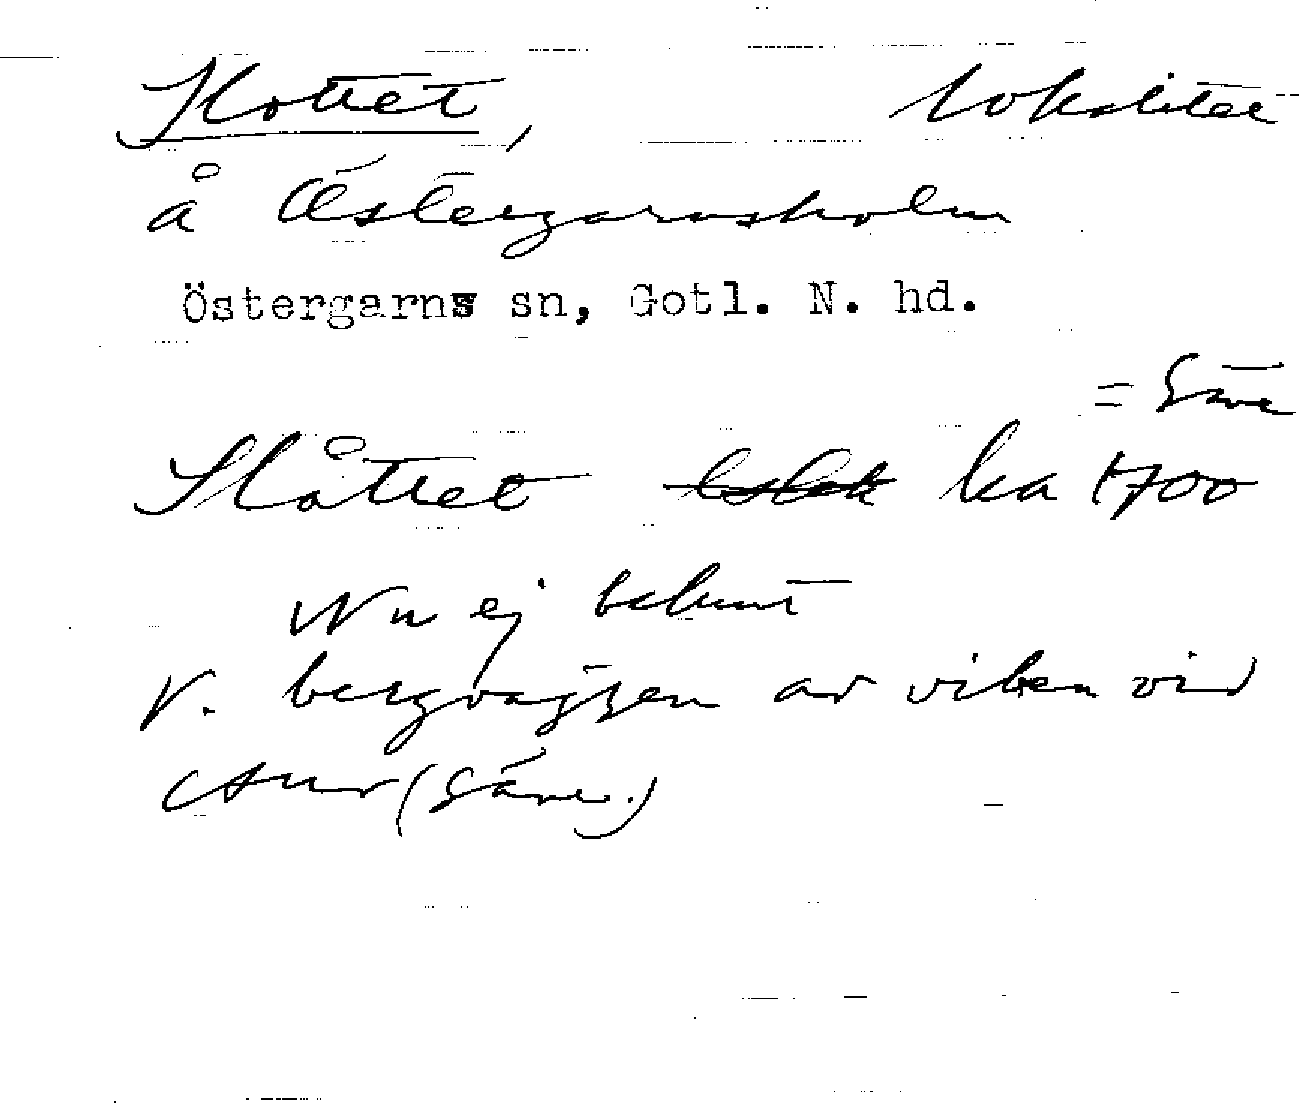 Slottet, lokalitet
å Östergarnsholm
Östergarns sn, Gotl. N. hd.
= Säve
Slåttet ka 1700
Nu ej bekant
V. bergväggen av viken vid
(Säve.)